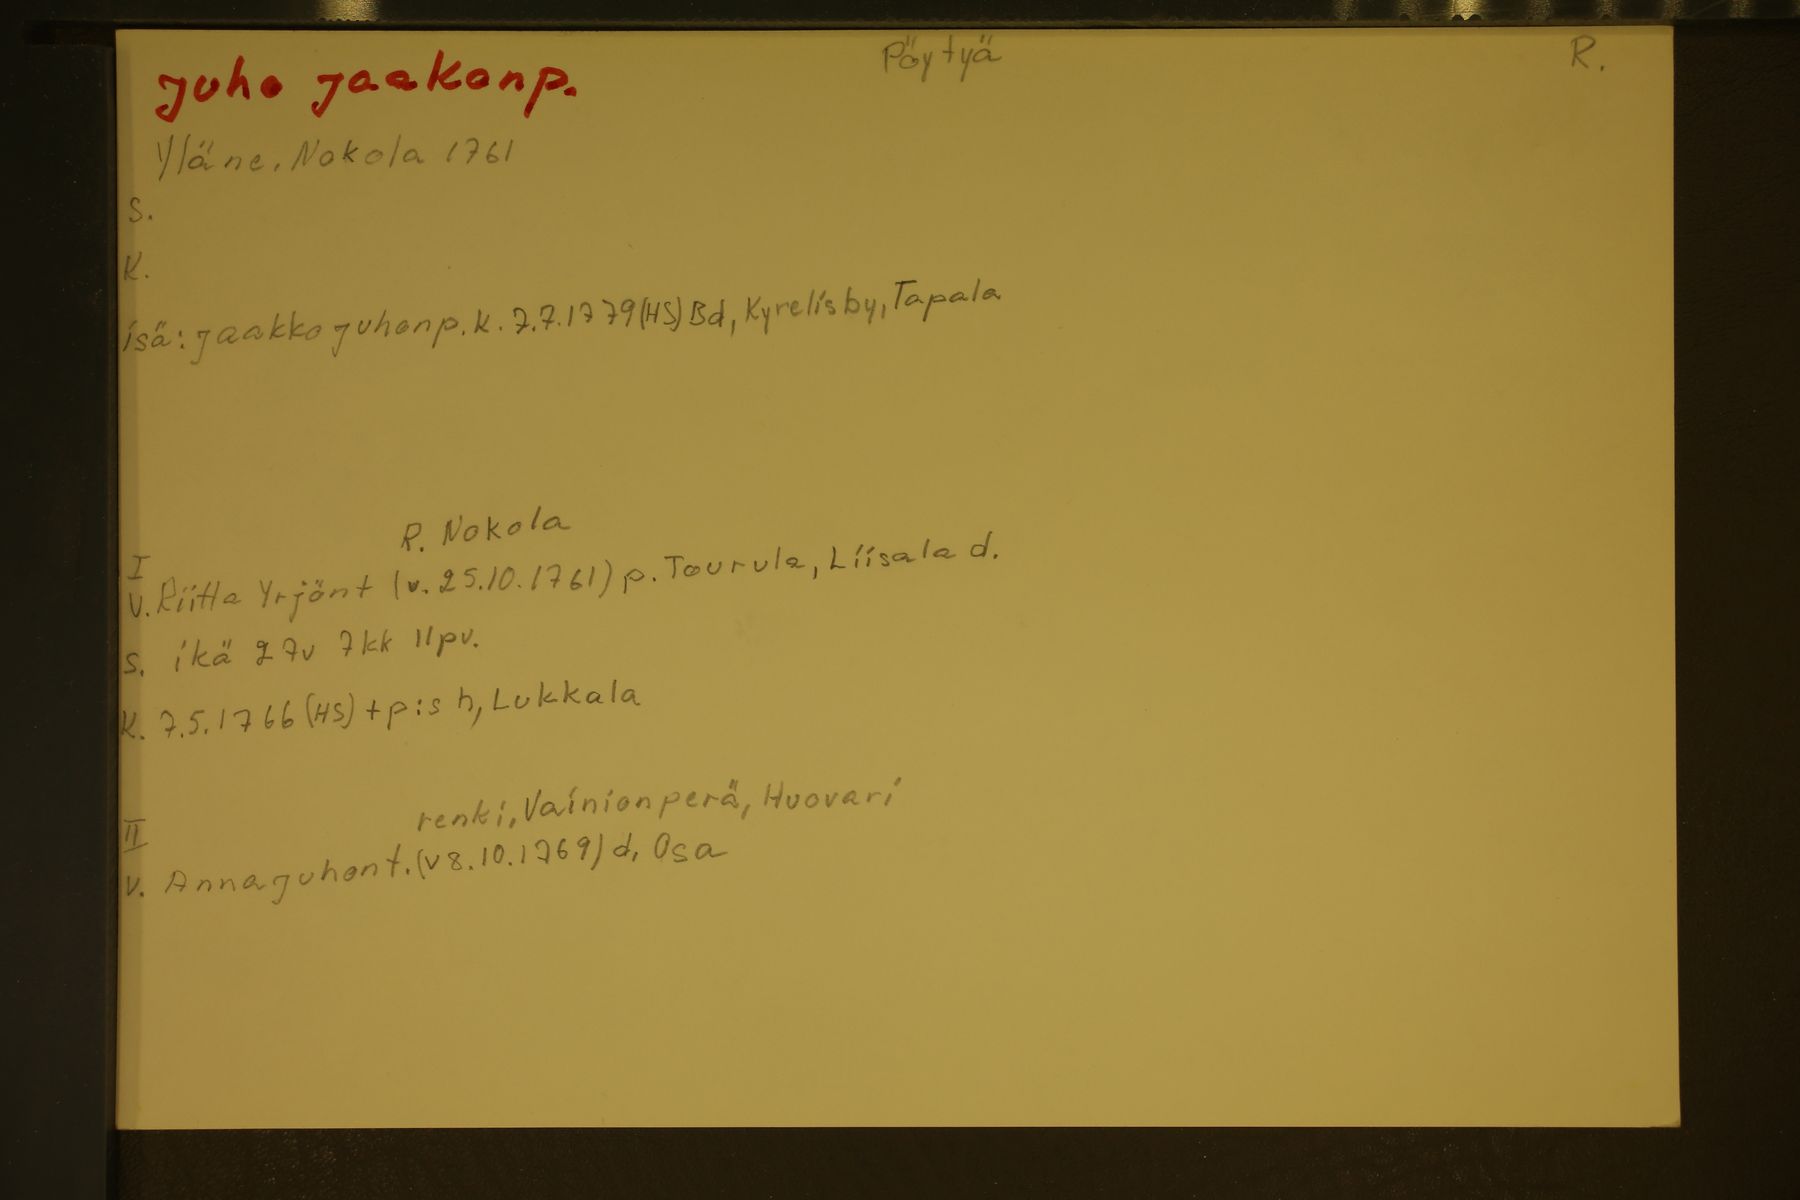 Juho Jaakonp. Pöytyä R.
Yläne, Nokola 1761
S.
K.
isä: Jaakko Juhonp. K. 7.7.1779 (HS) Bd, Kyrelisby, Tapala
R. Nokola
I
V. Riitta Yrjönt (v. 25.10.1761) p. Tourula, Liisala d.
S. ikä 27v 7kk 11pv.
K. 7.5.1766 (HS) + p:s h, Lukkala
renki, Vainionperä, Huovari
II
V. Anna Juhont. (v 8.10.1769) d, Osa